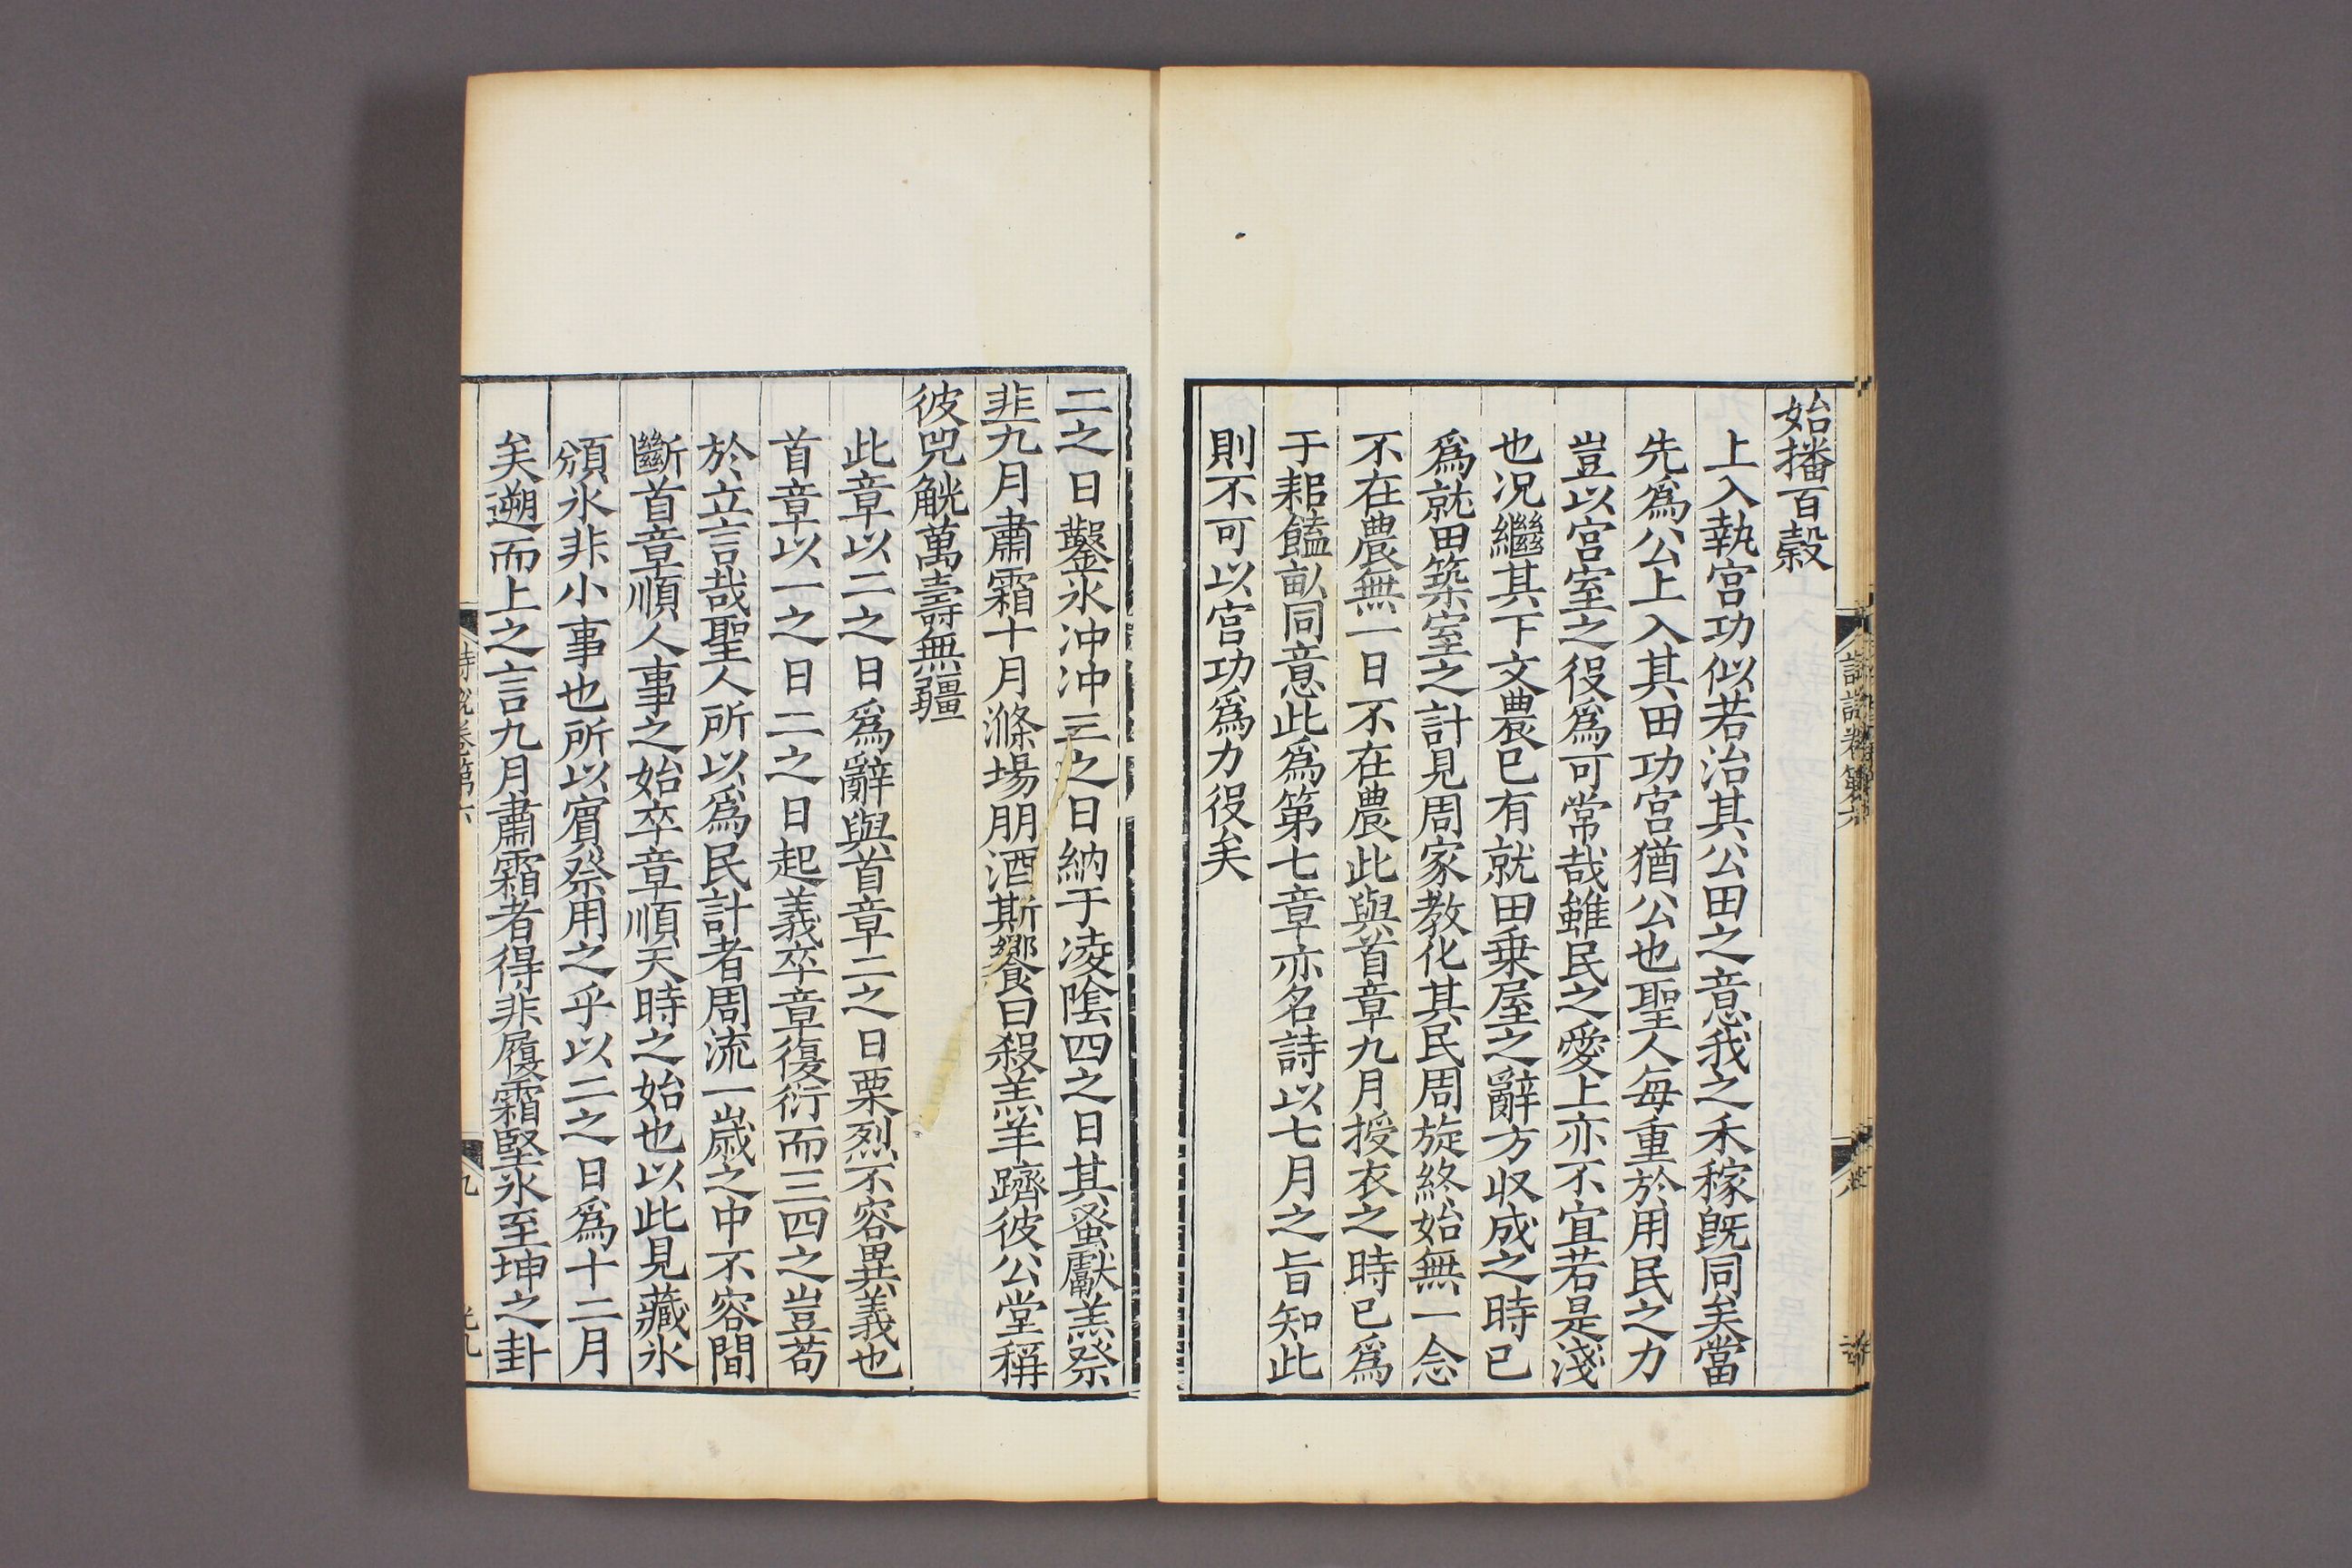 始播百穀
上入執宮功似若治其公田之意我之禾稼既同矣當
先爲公上入其田功宮猶公也聖人每重於用民之力
豈以宮室之役爲可常哉雖民之愛上亦不宜若是淺
也况繼其下文農已有就田乗屋之辭方収成之時已
爲就田築室之計見周家教化其民周旋終始無一念
不在農無一日不在農此與首章九月授衣之時已爲
于耜饁畝同意此爲第七章亦名詩以七月之旨知此
則不可以宮功爲力役矣
二之日鑿氷冲冲三之日納于凌隂四之日其蚤獻羔祭
韭九月肅霜十月滌場朋酒斯饗曰殺羔羊躋彼公堂稱
彼兕觥萬壽無疆
此章以二之日爲辭與首章二之日栗烈不容異義也
首章以一之日二之日起義卒章復衍而三四之豈苟
於立言哉聖人所以爲民計者周流一歳之中不容間
斷首章順人事之始卒章順天時之始也以此見藏氷
頒氷非小事也所以賔祭用之乎以二之日爲十二月
矣遡而上之言九月肅霜者得非履霜堅氷至坤之卦
詩説卷第六
九